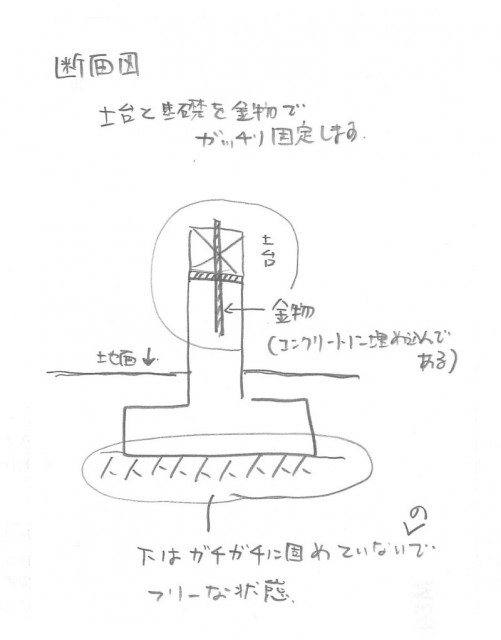 断面図
土台と基礎を金物で
ガッチリ固定しまる.
土台
金物
(コンクリートに埋め込んで
ある)
地面↓
の
下はガチガチに固めていないで
フリーな状態.